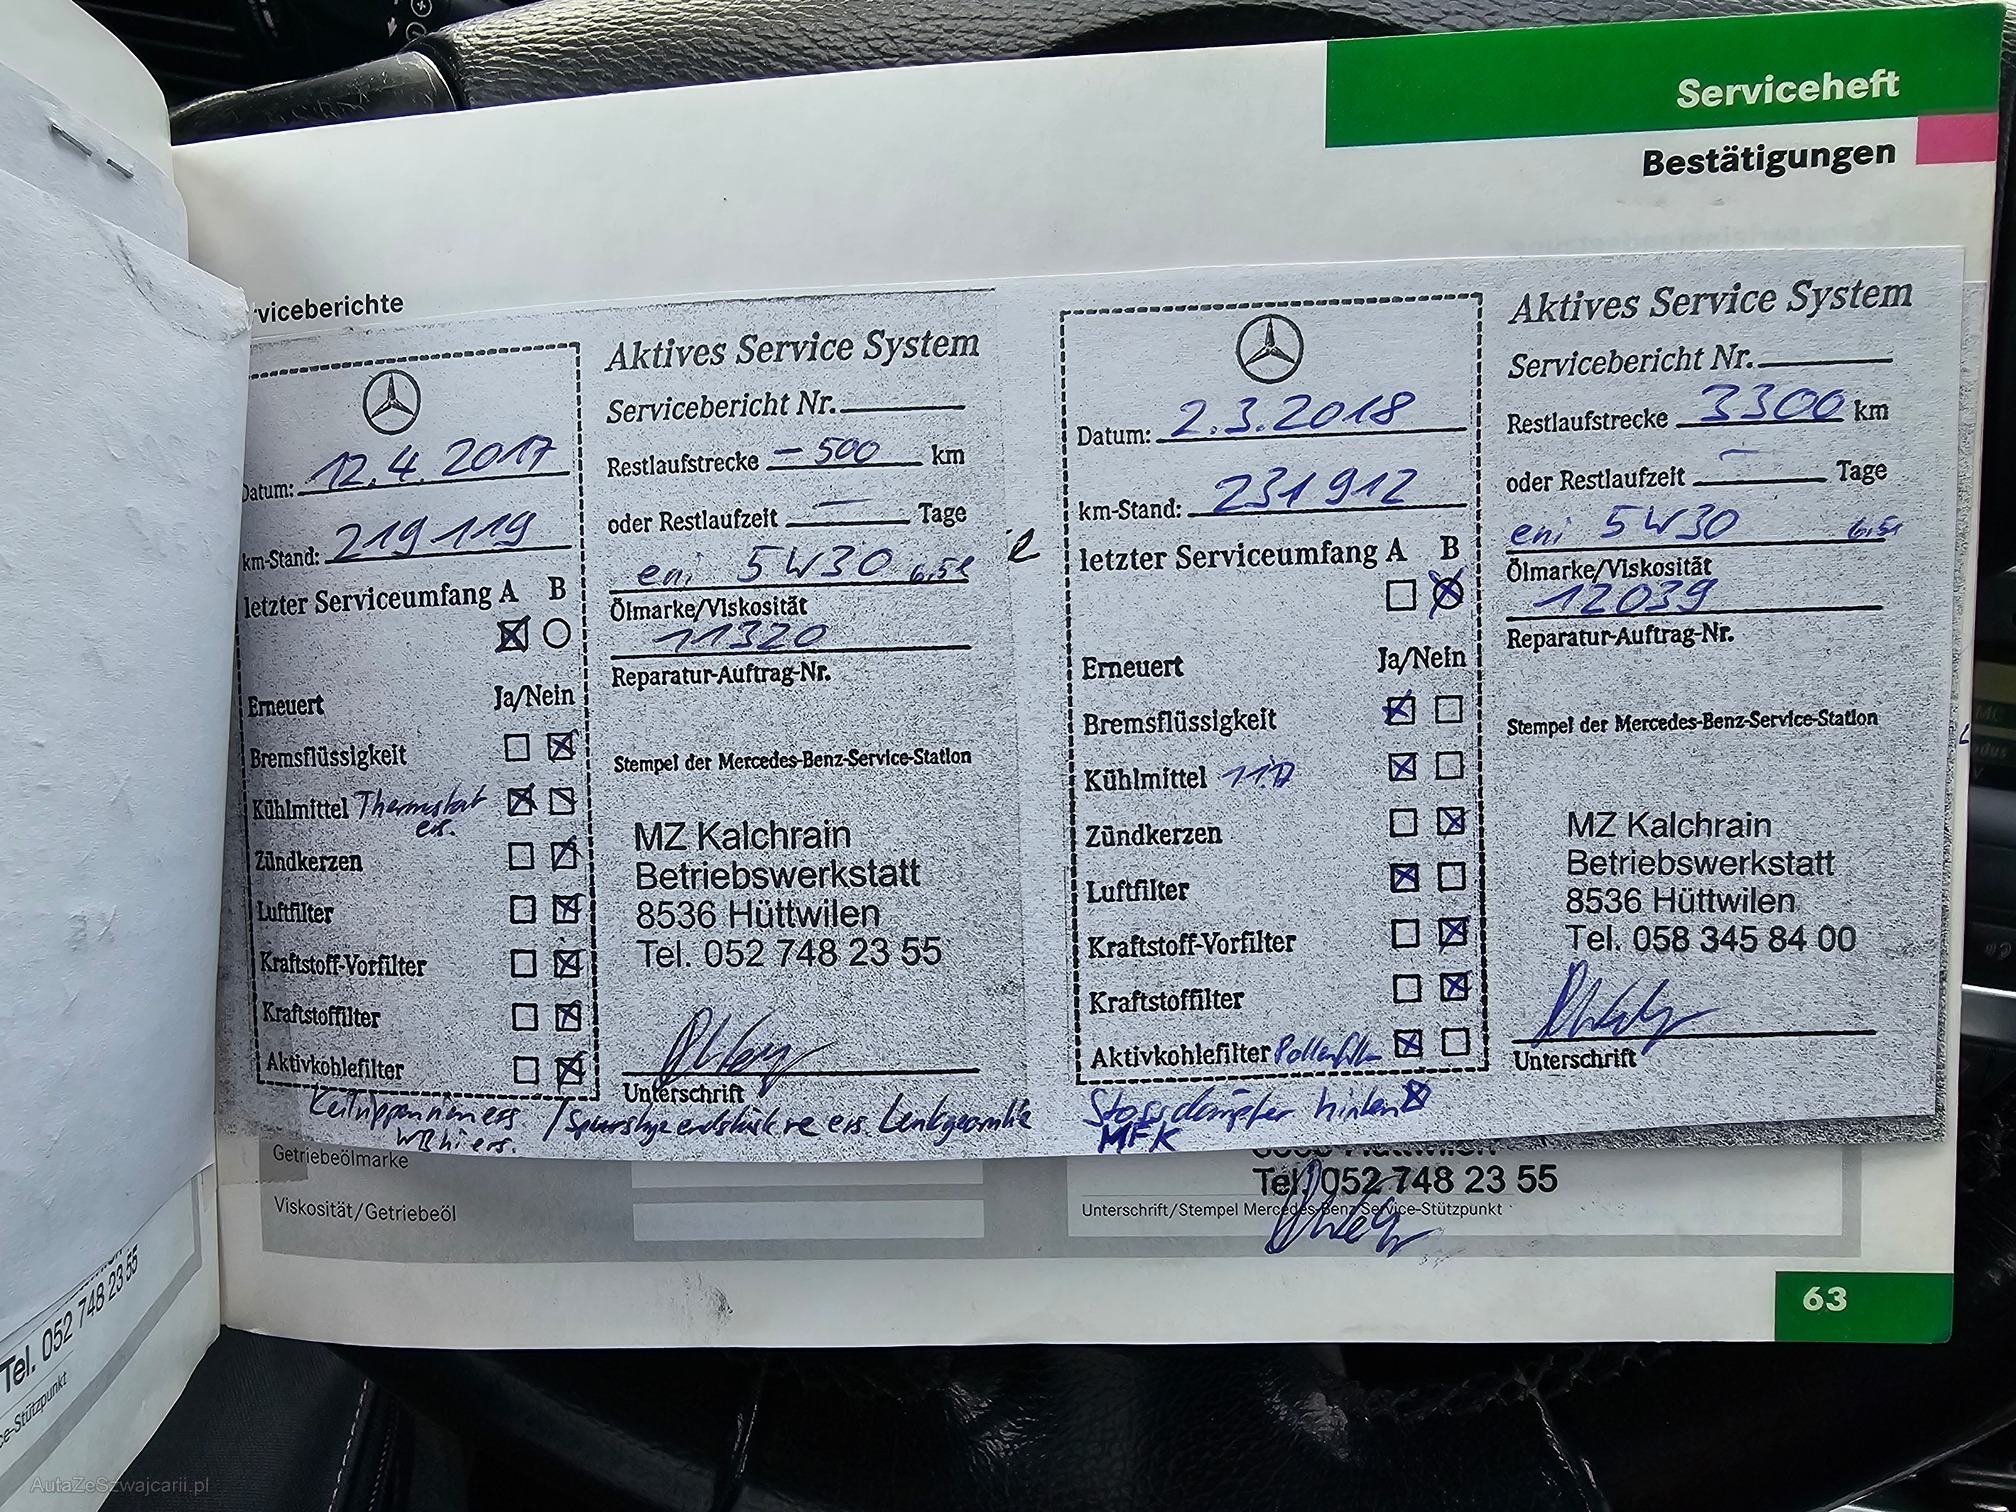 Serviceheft
Bestätigungen
rviceberichte
Datum: 12.4.2017
km-Stand: 219119
letzter Serviceumfang A B
Erneuert Ja/Nein
Bremsflüssigkeit
Kühlmittel Thermostat
ers.
Zündkerzen
Luftfilter
Kraftstoff-Vorfilter
Kraftstoffilter
Aktivkohlefilter
Keilrippenriemen ers. / Spurstangenendstück re ers. Lenkgeometrie
Aktives Service System
Servicebericht Nr.
Restlaufstrecke -500 km
oder Restlaufzeit — Tage
eni 5W30 6,5l
Ölmarke/Viskosität
11320
Reparatur-Auftrag-Nr.
Stempel der Mercedes-Benz-Service-Station
MZ Kalchrain
Betriebswerkstatt
8536 Hüttwilen
Tel. 052 748 23 55
Unterschrift
Datum: 2.3.2018
km-Stand: 231912
letzter Serviceumfang A B
Erneuert Ja/Nein
Bremsflüssigkeit
Kühlmittel
Zündkerzen
Luftfilter
Kraftstoff-Vorfilter
Kraftstoffilter
Aktivkohlefilter Pollenfilter
Stossdämpfer hinten
MFK
Aktives Service System
Servicebericht Nr.
Restlaufstrecke 3300 km
oder Restlaufzeit — Tage
eni 5W30 6,5l
Ölmarke/Viskosität
12039
Reparatur-Auftrag-Nr.
Stempel der Mercedes-Benz-Service-Station
MZ Kalchrain
Betriebswerkstatt
8536 Hüttwilen
Tel. 058 345 84 00
Unterschrift
Getriebeölmarke
Viskosität/Getriebeöl
Tel. 052 748 23 55
Unterschrift/Stempel Mercedes-Benz Service-Stützpunkt
63
Tel. 052 748 23 55
ce-Stützpunkt
AutaZeSzwajcarii.pl